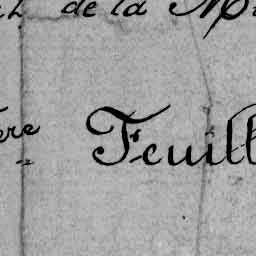 de la
ère Feuill